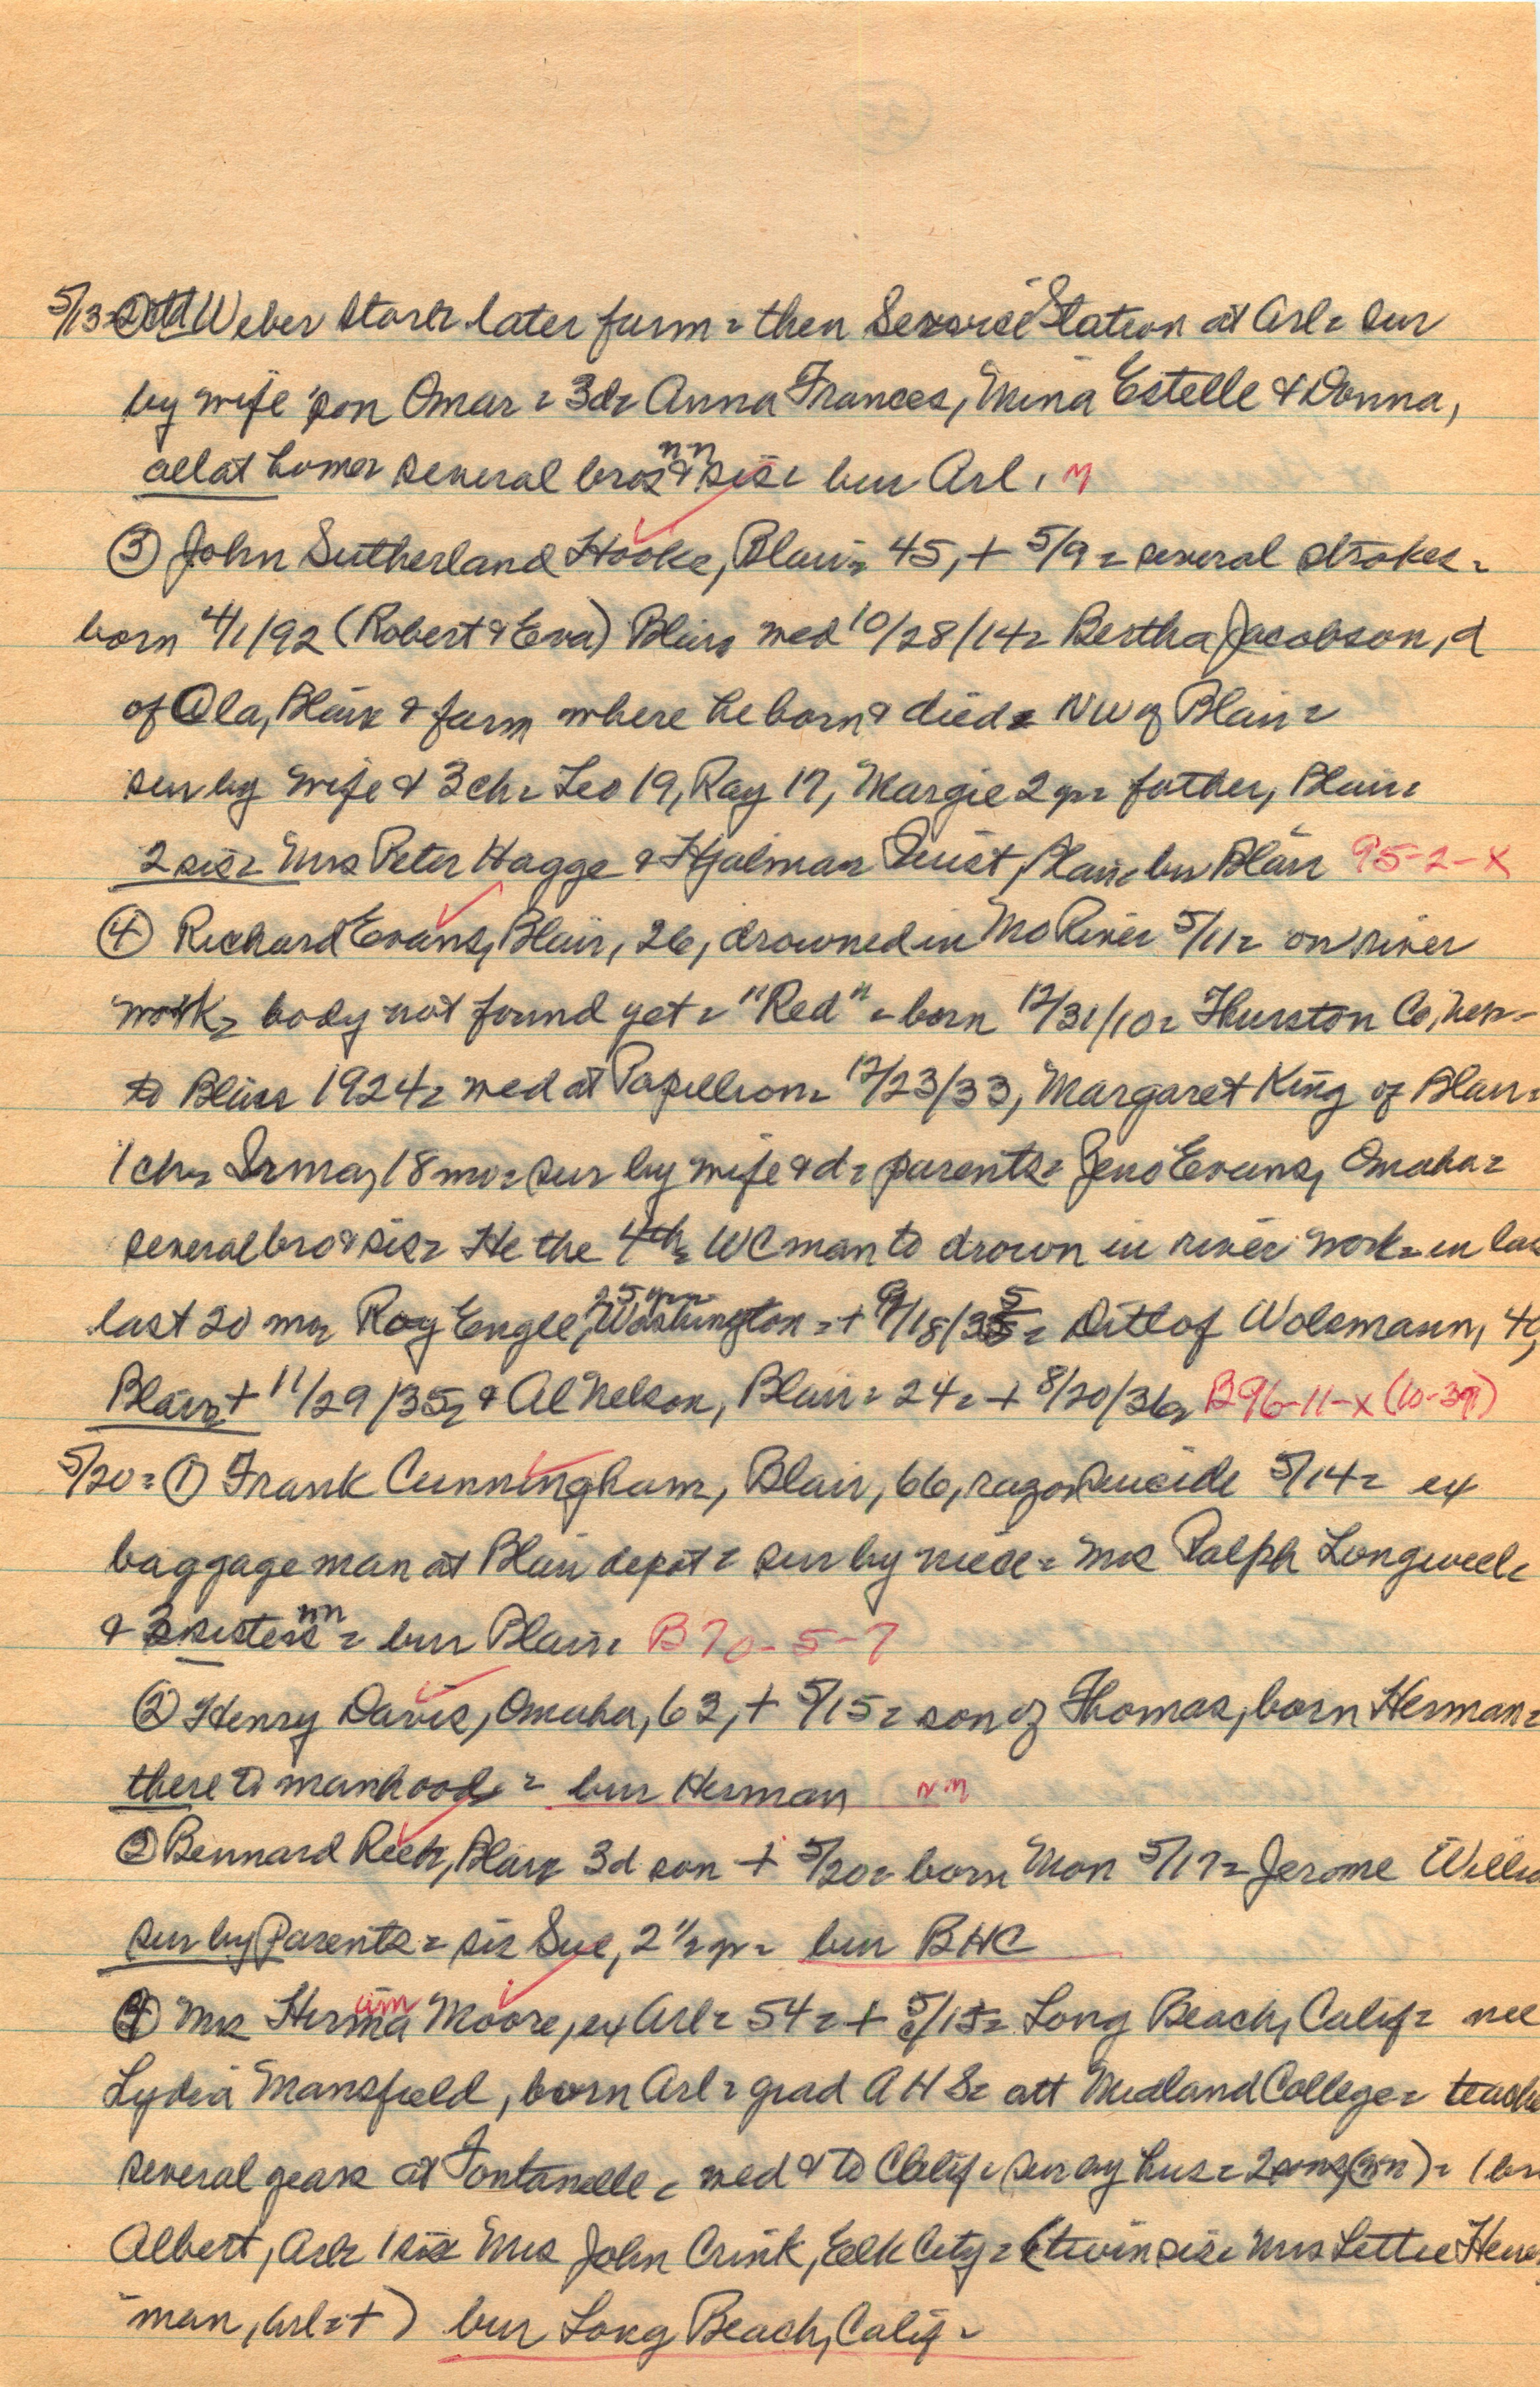 5/13= Weber store later farm = then Service Station at Arl = sur
by wife son Omar = 3d= Anna Frances, Mina Estelle & Donna,
all at home= several bros & sis= nn bur Arl. M
③ John Sutherland Hooke, Blair= 45, + 5/9 = several strokes =
born 4/1/92 (Robert & Eva) Blair= wed 10/28/14= Bertha Jacobson, d
of Ola, Blair & farm where he born & died= NW of Blair=
sur by wife & 3 ch= Leo 19, Ray 17, Margie 2 yr= father, Blair=
2 sis= Mrs Peter Hagge & Hjalmar Quist, Blair= bur Blair 95-2-X
④ Richard Evans, Blair, 26, drowned in Mo River 5/11= on river
work= body not found yet= "Red" = born 12/31/10= Thurston Co, Neb=
to Blair 1924= wed at Papillion= 12/23/33, Margaret King of Blair=
1 ch= Irma, 18 mo= sur by wife & d= parents= Jens Evans, Omaha=
several bro & sis= He the 4th= WC man to drown in river work= in
last 20 mo= Roy Engel, 25 yrs Washington = + 9/18/35= Ditlof Wolsmann, 40,
Blair= + 11/29/35= & Al Nelson, Blair= 24= + 8/20/36= B96-11-X (10-37)
5/20= ① Frank Cunningham, Blair, 66, razor suicide 5/14= ex
baggage man at Blair depot= sur by niece= Mrs Ralph Longwell=
& 3 sisters nn = bur Blair= B70-5-7
② Henry Davis, Omaha, 63, + 5/15= son of Thomas, born Herman=
there to manhood = bur Herman nn
③ Bennard Reeh, Blair 3d son + 5/20= born Mon 5/17= Jerome
sur by Parents= sis Sue, 2 1/2 yr= bur BHC
④ Mrs Herman Moore, ex Arl= 54= + 5/15= Long Beach, Calif= nee
Lydia Mansfield, born Arl= grad AHS= att Midland College=
several years at Fontanelle= wed & to Calif= sur by hus= 2 sons (nn)= 1
Albert, Arl= 1 sis Mrs John Crink, Elk City= (twin sis= Mrs Lettie
man, Arl=+) bur Long Beach, Calif=